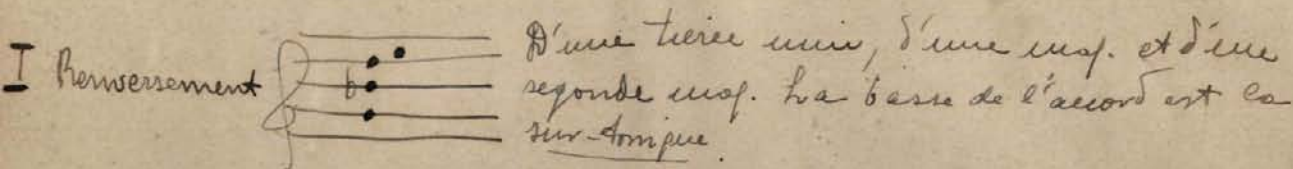 I Renversement D'une tierce min, d'une maj. et d'une
segonde maj. La basse de l'accord est la
sur-tonique